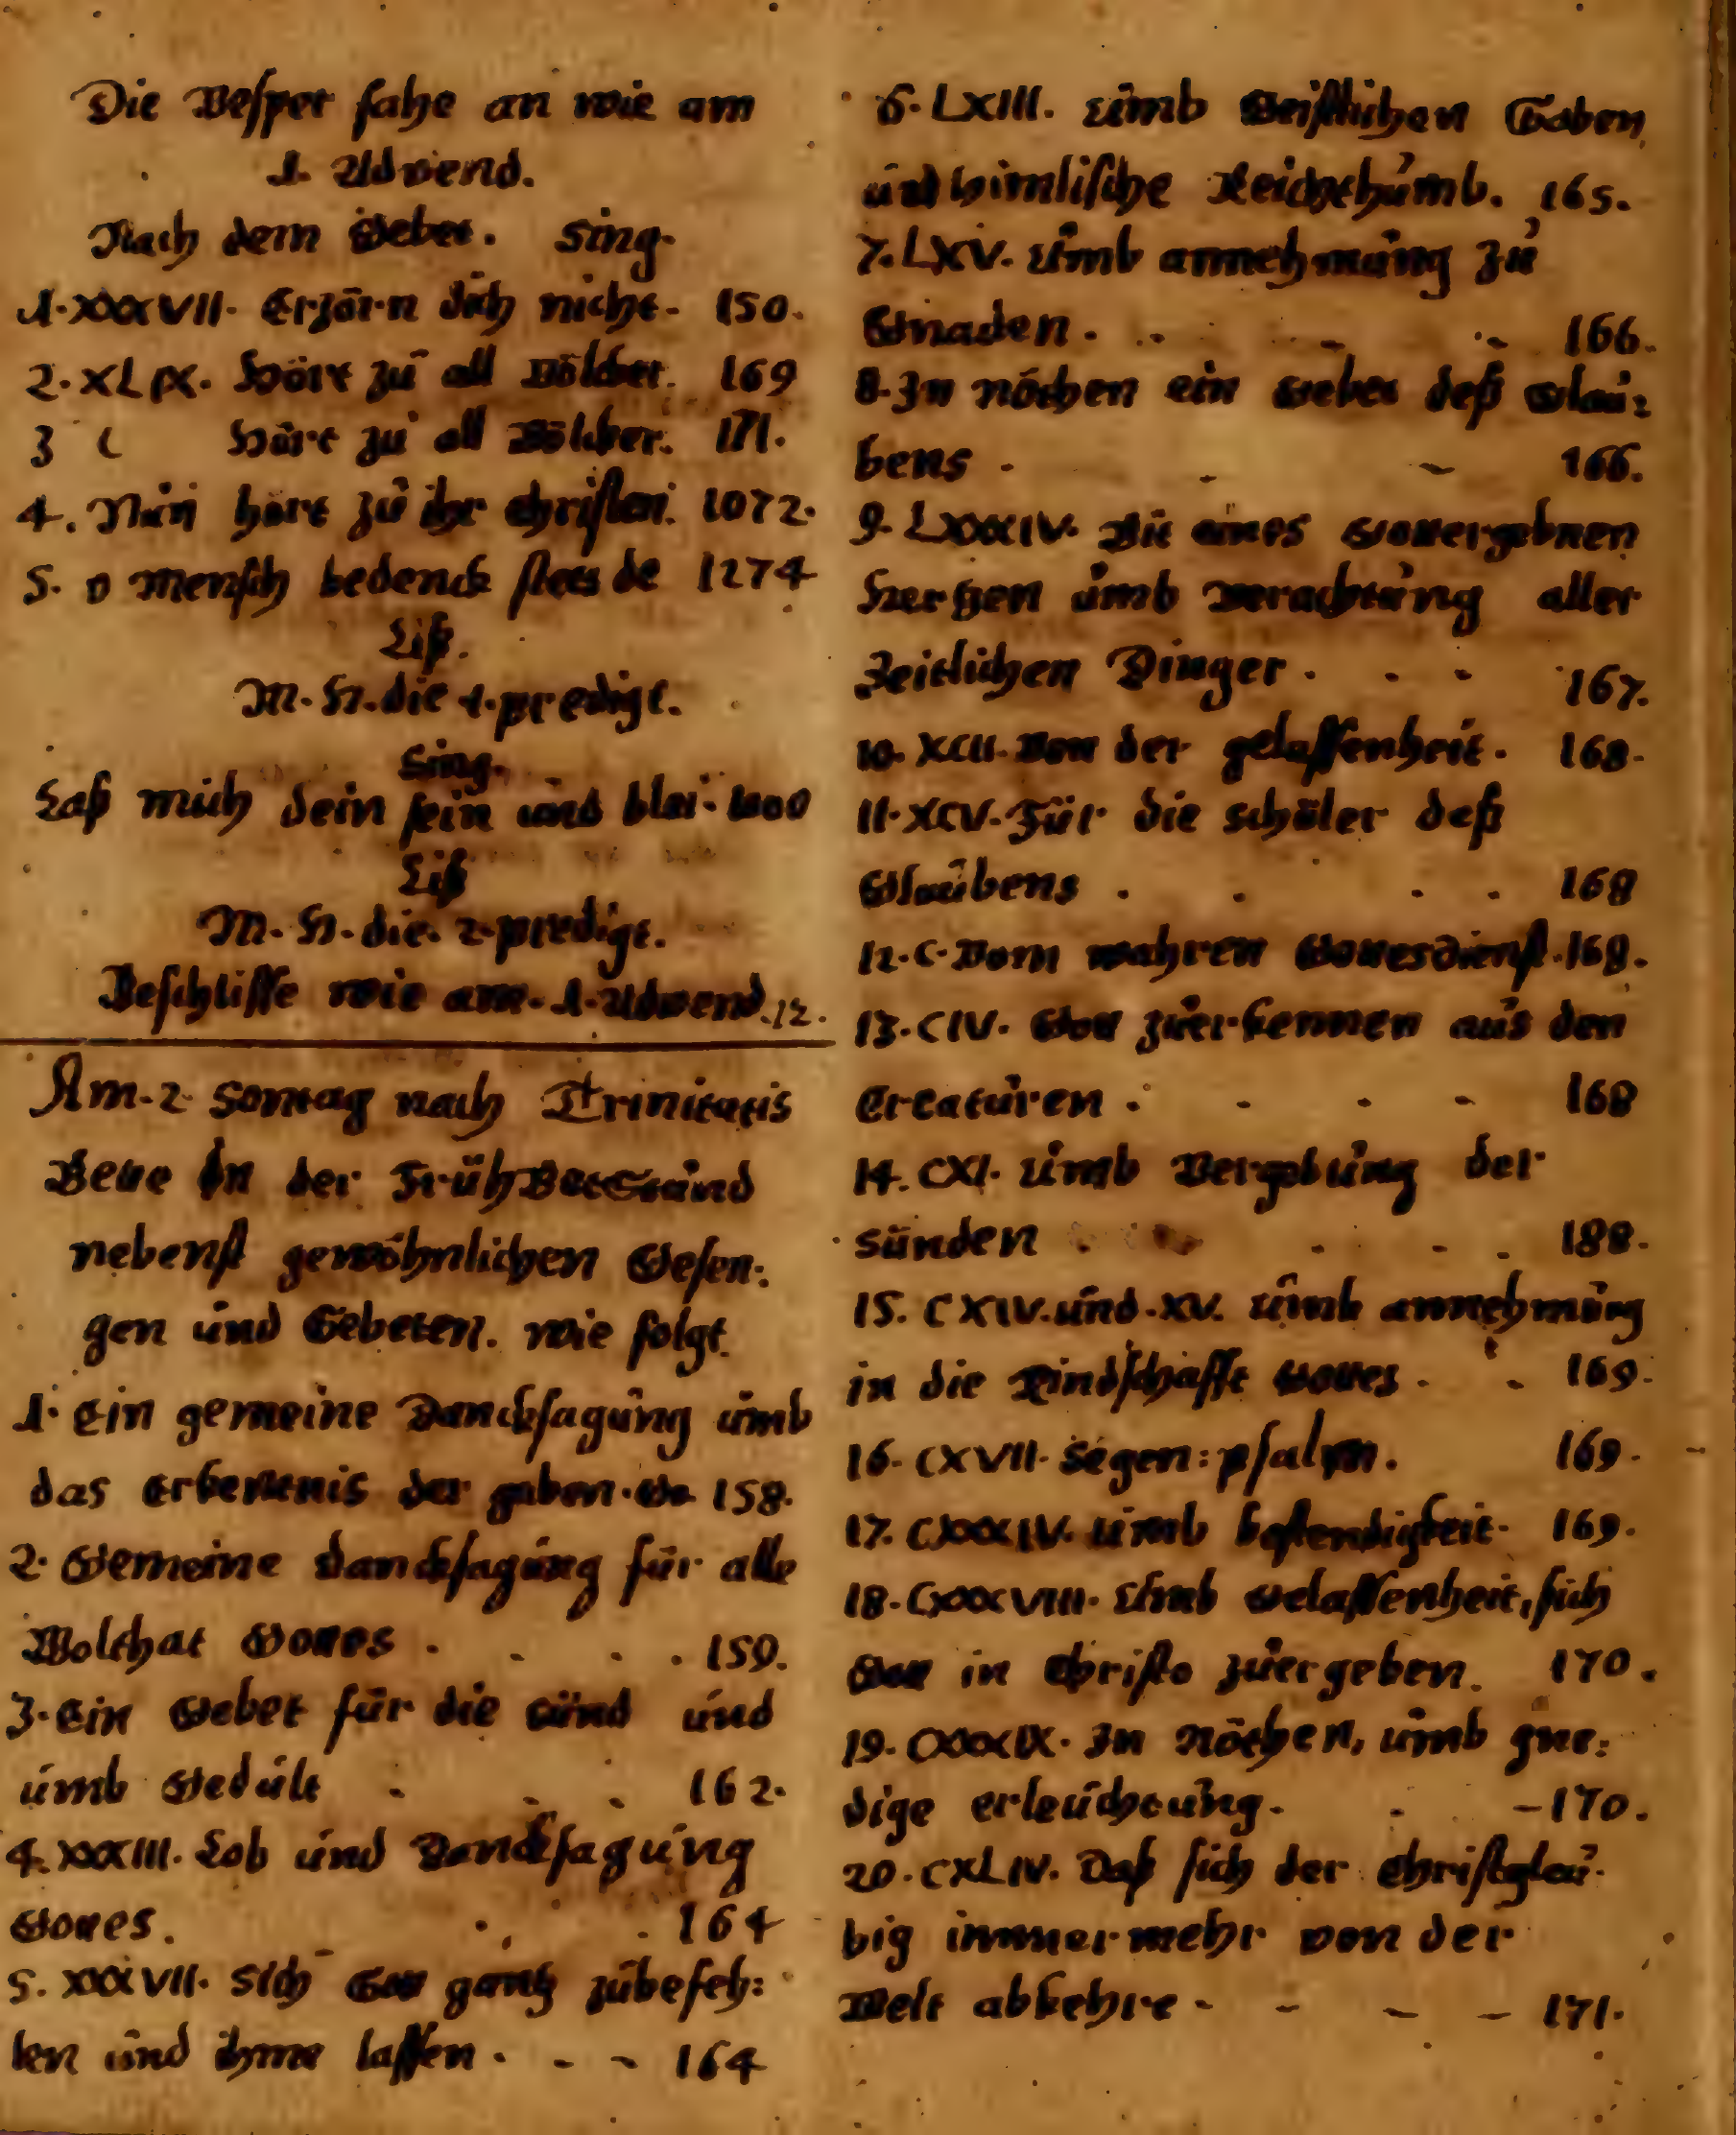 Die Vesper fahe an wie am
1. Advend.
Nach dem Gebet. Sing.
1. XXXVII. Erzörn dich nicht. 150.
2. XLIX. Hört zu all Völcker. 169
3 L Hört zu all Völcker. 171.
4. Nun hört zu ihr Christen. 1072.
5. O Mensch bedenck stets de 1274
Liß.
M. H. die 1. predigt.
Sing.
Laß mich dein sein und blei.
Liß
M. H. die 2 predigt.
Beschlisse wie am 1. Advend. 12.
Am 2 Sontag nach Trinitatis
Bette In der Früh BetStund
nebenst gewöhnlichen Gesen:
gen und Gebeten. wie folgt.
1. Ein gemeine Dancksagung umb
das Erkentnis der gaben. Go 158.
2. Gemeine Dancksagung für alle
Wolthat Gottes . . . . 159.
3. Ein Gebet für die Sünd und
umb Gedult . . . 162.
4. XXXIII. Lob und Dancksagung
Gottes. . . 164
5. XXXVII. Sich Gott gantz zubefeh:
len und ihme lassen. - - 164
6. LXIII. Umb Geistlichen Gaben
und himlische Reichthumb. 165.
7. LXV. Umb annehmung zu
Gnaden. . . . 166.
8. In nöthen ein Gebet deß Glau:
bens . - - 166.
9. LXXXIV. Bit eines Gottergebnen
Hertzen umb Verachtung aller
Zeitlichen Dinger. . . 167.
10. XCII. Von der gelassenheit. 168.
11. XCV. Für die schöler deß
Glaubens . . . . 168
12. C. Vom wahren Gottesdienst. 168.
13. CIV. Gott zuerkennen aus den
Creaturen . . . - 168
14. CXI. Umb Vergebung der
Sünden . . . . 188.
15. CXIV. und. XV. Umb annehmung
in die Kindschafft Gottes . . 169.
16. CXVII. Segen: psalm. 169.
17. CXXXIV. Umb bestendigkeit. 169.
18. CXXXVIII. Umb Gelassenheit, sich
Gott in Christo zuergeben. 170.
19. CXXXIX. In Nöthen, umb gne:
dige erleuchtung. . - 170.
20. CXLIV. Daß sich der Christglau:
big immermehr von der
Welt abkehre - - - - 171.